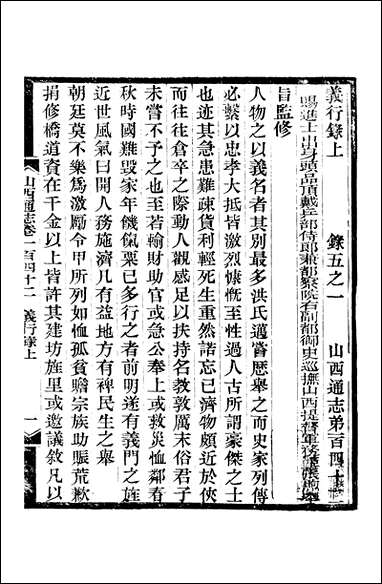 義行錄上　錄五之一　山西通志弟百四十二
賜進士出身頭品頂戴兵部侍郎兼都察院右副都御史巡撫山西提督軍務
旨監修
人物之以義名者其別最多洪氏邁嘗歷舉之而史家列傳
必繫以忠孝大抵皆激烈慷慨至性過人古所謂豪傑之士
也迹其急患難疎貨利輕死生重然諾忘已濟物頗近於俠
而往往倉卒之際動人觀感足以扶持名敎敦厲末俗君子
未嘗不予之也至若輸財助官或急公奉上或救災恤鄰春
秋時國難毀家年饑餼粟已多行之者前明遂有義門之旌
近世風氣日開人務施濟凡有益地方有裨民生之舉
朝廷莫不樂爲激勵令甲所列如恤孤貧贍宗族助賑荒歉
捐修橋道資在千金以上皆許其建坊旌里或邀議敘凡以
山西通志卷一百四十二　義行錄上　一